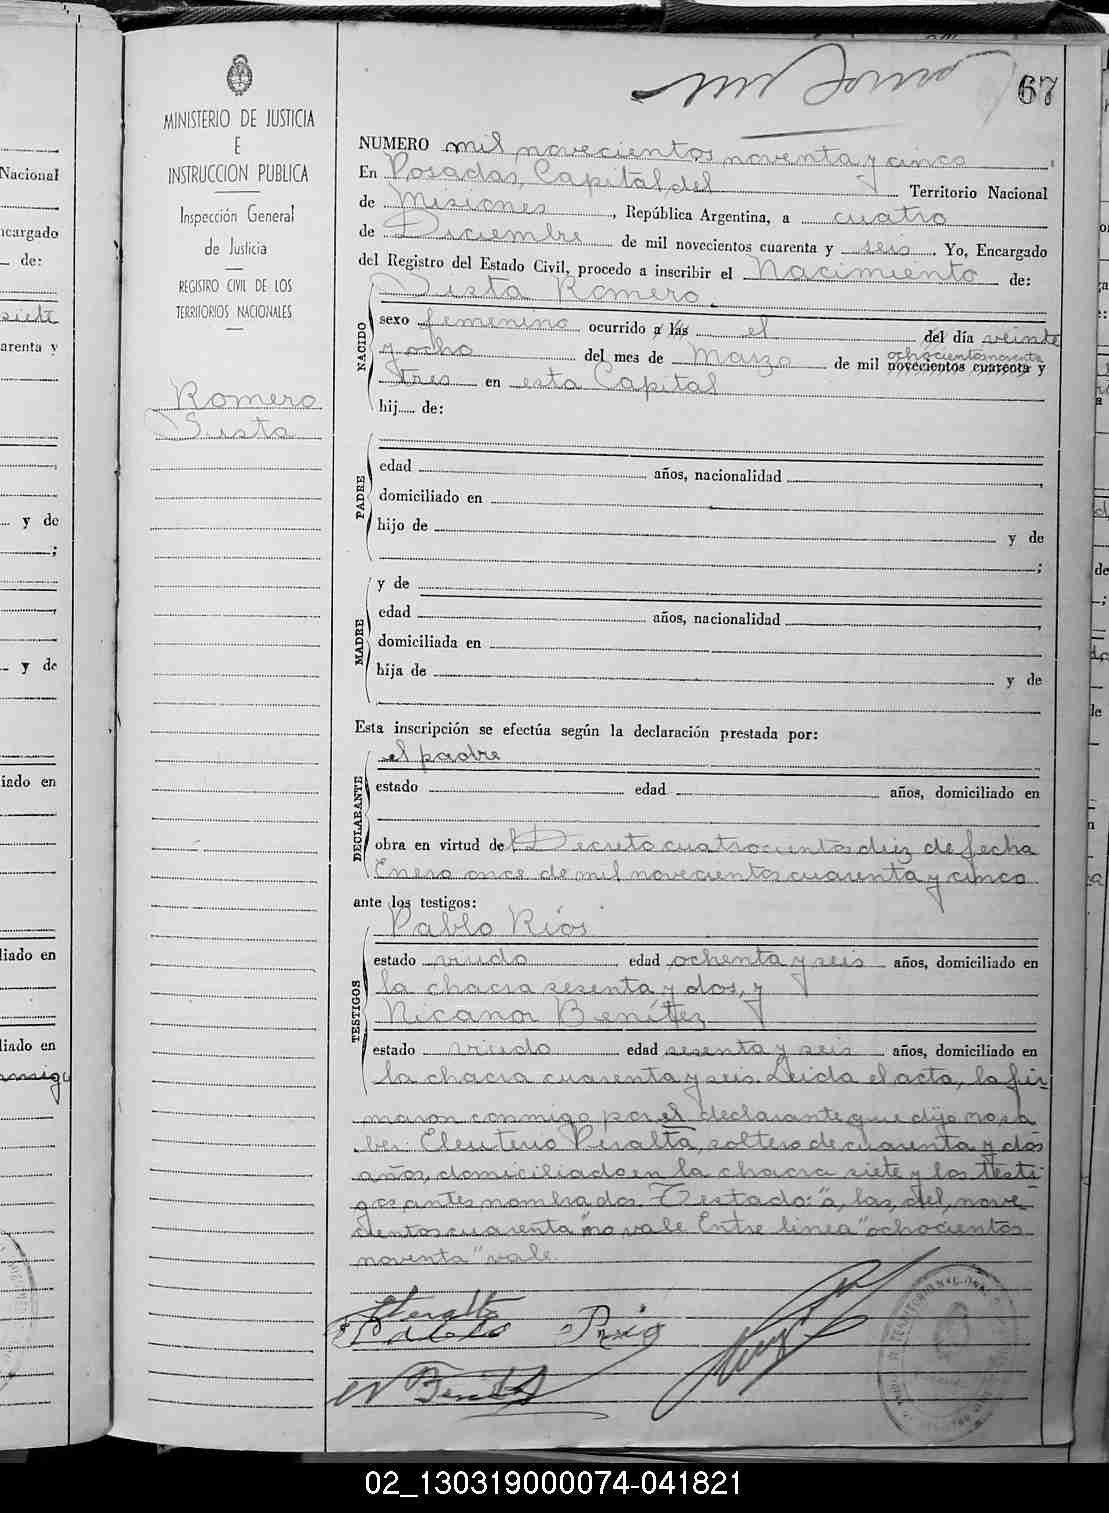 67
MINISTERIO DE JUSTICIA
E
INSTRUCCION PUBLICA
Inspección General
de Justicia
REGISTRO CIVIL DE LOS
TERRITORIOS NACIONALES
Romero
Sista
NUMERO mil novecientos noventa y cinco
En Posadas, Capital del Territorio Nacional
de Misiones, República Argentina, a cuatro
de Diciembre de mil novecientos cuarenta y seis. Yo, Encargado
del Registro del Estado Civil, procedo a inscribir el Nacimiento de:
Sista Romero.
NACIDO
sexo femenino ocurrido a las el del día veinte
y ocho del mes de Marzo de mil novecientos cuarenta y
ochocientos noventa
tres en esta Capital
hij de:
PADRE
edad años, nacionalidad
domiciliado en
hijo de y de
;
MADRE
y de
edad años, nacionalidad
domiciliada en
hija de y de
Esta inscripción se efectúa según la declaración prestada por:
DECLARANTE
el padre
estado edad años, domiciliado en
obra en virtud del Decreto cuatrocientos diez de fecha
Enero once de mil novecientos cuarenta y cinco
ante los testigos:
TESTIGOS
Pablo Ríos
estado viudo edad ochenta y seis años, domiciliado en
la chacra sesenta y dos, y
Nicanor Benítez
estado viudo edad sesenta y seis años, domiciliado en
la chacra cuarenta y seis. Leida el acta, la fir-
maron conmigo por el declarante que dijo no sa
ber: Eleuterio Peralta, soltero de cuarenta y dos
años, domiciliado en la chacra siete y los testi-
gos antes nombrados. Testado: "a, las, del, nove
cientos cuarenta" no vale. Entre linea "ochocientos
noventa" vale.
Peralta
Pablo Rios
N Benitez
Nacional
encargado
de:
siete
arenta y
y de
;
y de
iado en
liado en
liado en
conmigo
02_130319000074-041821